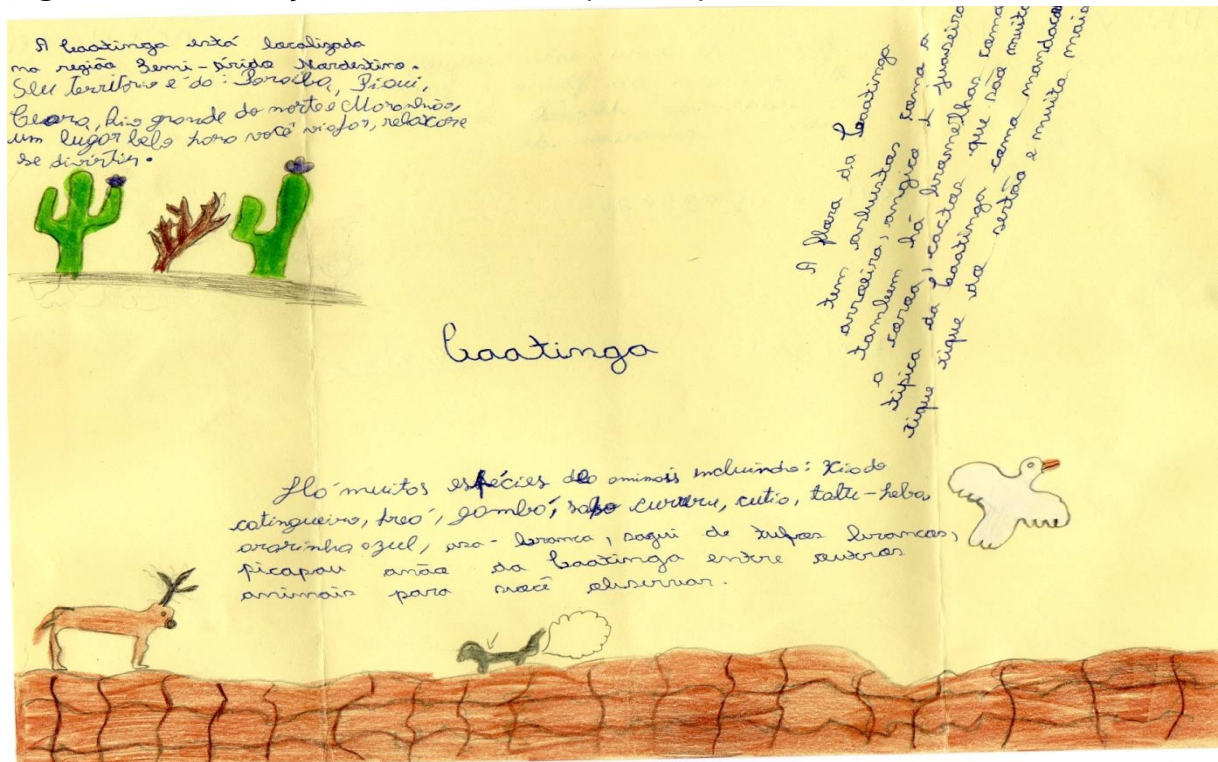 A Caatinga está localizada
na região Semi-Árido Nordestino.
Seu território é do: Paraíba, Piaui,
Ceara, Rio grande do norte e Maranhão,
um lugar belo para você viajar, relaxar e
se divirtir.
A flora da Caatinga
tem arbustos como a
arroeira, angico e juaseiro
tambem há bromelhas como
o caroá, cactos que são muito
tipica da Caatinga como mandacaru
tique tique do sertão e muito mais
Caatinga
Há muitos espécies de animais incluindo:
catingueiro, preá, gambá, sapo cururu, cutia, tatu-peba
ararinha azul, asa-branca, sagui de tufos brancos,
picapau anão da Caatinga entre outros
animais para você observar.